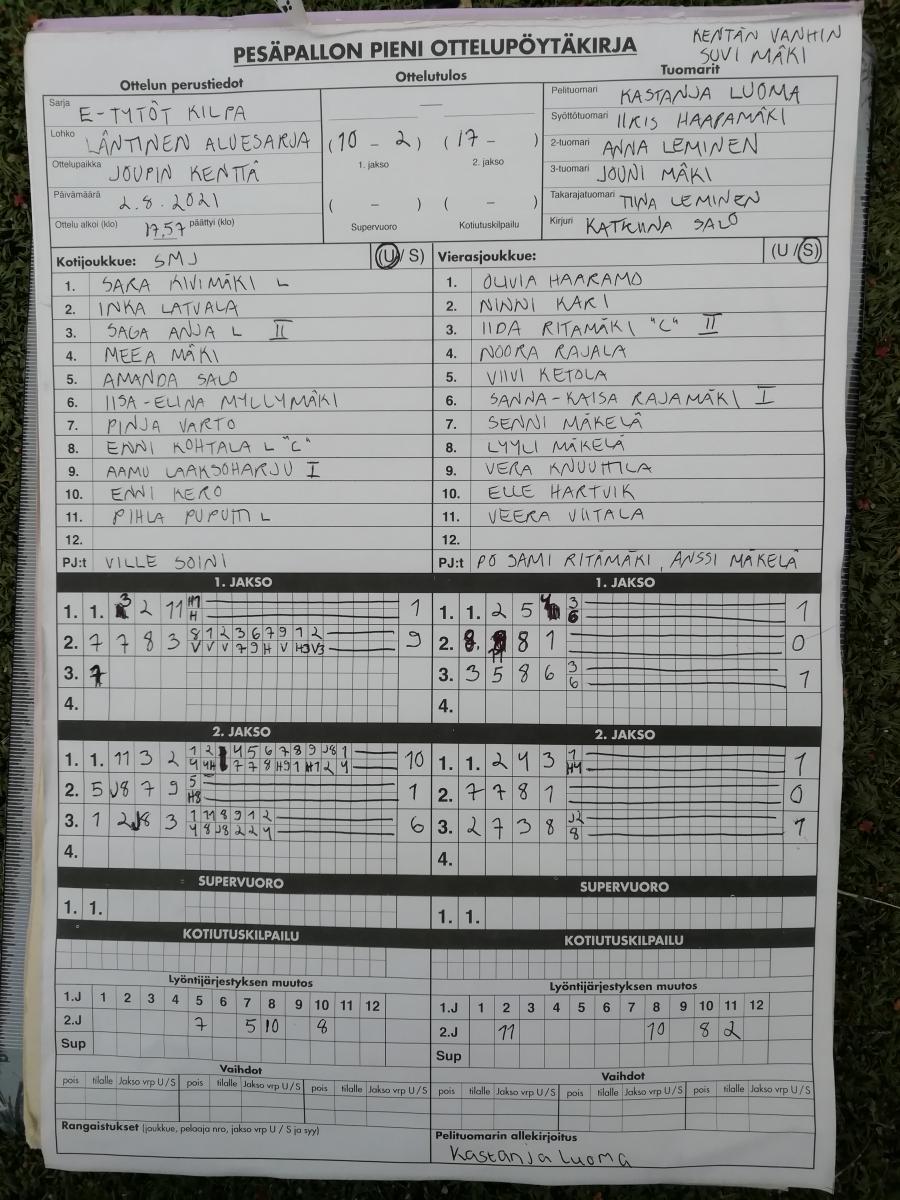 KENTÄN VANHIN
SUVI MÄKI
PESÄPALLON PIENI OTTELUPÖYTÄKIRJA
Ottelun perustiedot
Ottelutulos
Tuomarit
Sarja E-TYTÖT KILPA
Lohko LÄNTINEN ALUESARJA
Ottelupaikka JOUPIN KENTTÄ
Päivämäärä 2.8.2021
Ottelu alkoi (klo) 17.57 päättyi (klo)
(10 - 2) (17 - )
1. jakso 2. jakso
( - ) ( - )
Supervuoro Kotiutuskilpailu
Pelituomari KASTANJA LUOMA
Syöttötuomari IIRIS HAAPAMÄKI
2-tuomari ANNA LEMINEN
3-tuomari JOUNI MÄKI
Takarajatuomari TIINA LEMINEN
Kirjuri KATRIINA SALO
Kotijoukkue: SMJ (U / S)
1. SARA KIVIMÄKI L
2. INKA LATVALA
3. SAGA ANJA L II
4. MEEA MÄKI
5. AMANDA SALO
6. IISA-ELINA MYLLYMÄKI
7. PINJA VARTO
8. ENNI KOHTALA L "C"
9. AAMU LAAKSOHARJU I
10. ENNI KERO
11. PIHLA PUPUTTI L
12.
PJ:t VILLE SOINI
Vierasjoukkue: (U / S)
1. OLIVIA HAARAMO
2. NINNI KARI
3. IIDA RITAMÄKI "C" II
4. NOORA RAJALA
5. VIIVI KETOLA
6. SANNA-KAISA RAJAMÄKI I
7. SENNI MÄKELÄ
8. LYYLI MÄKELÄ
9. VERA KNUUTTILA
10. ELLE HARTVIK
11. VEERA VIITALA
12.
PJ:t PÖ SAMI RITAMÄKI, ANSSI MÄKELÄ
1. JAKSO
1. 1. 3 2 11 H1 1
H
2. 7 7 8 3 8 1 2 3 6 7 9 1 2 9
V V V 7 9 H V H3 V3
3. 7
4.
1. JAKSO
1. 1. 2 5 3 1
6
2. 8 1 0
3. 3 5 8 6 3 1
6
4.
2. JAKSO
1. 1. 11 3 2 1 2 4 5 6 7 8 9 J8 1 10
4 4H 7 7 8 H9 1 H1 2 4
2. 5 J8 7 9 5 1
H8
3. 1 2 J8 3 1 11 8 9 1 2 6
4 8 J8 2 2 4
4.
2. JAKSO
1. 1. 2 4 3 1 1
H4
2. 7 7 8 1 0
3. 2 7 3 8 J2 1
8
4.
SUPERVUORO
1. 1.
SUPERVUORO
1. 1.
KOTIUTUSKILPAILU
KOTIUTUSKILPAILU
Lyöntijärjestyksen muutos
1.J 1 2 3 4 5 6 7 8 9 10 11 12
2.J 7 5 10 8
Sup
Lyöntijärjestyksen muutos
1.J 1 2 3 4 5 6 7 8 9 10 11 12
2.J 11 10 8 2
Sup
Vaihdot
pois tilalle Jakso vrp U/S pois tilalle Jakso vrp U/S pois tilalle Jakso vrp U/S
Vaihdot
pois tilalle Jakso vrp U/S pois tilalle Jakso vrp U/S pois tilalle Jakso vrp U/S
Rangaistukset (joukkue, pelaaja nro, jakso vrp U / S ja syy)
Pelituomarin allekirjoitus
Kastanja Luoma